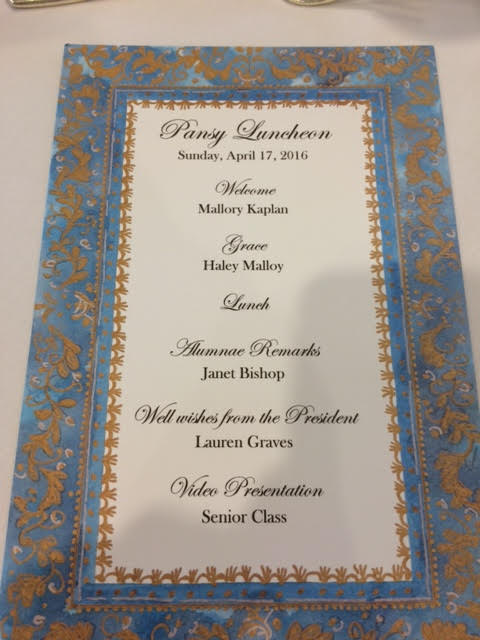 Pansy Luncheon
Sunday, April 17, 2016
Welcome
Mallory Kaplan
Grace
Haley Malloy
Lunch
Alumnae Remarks
Janet Bishop
Well wishes from the President
Lauren Graves
Video Presentation
Senior Class